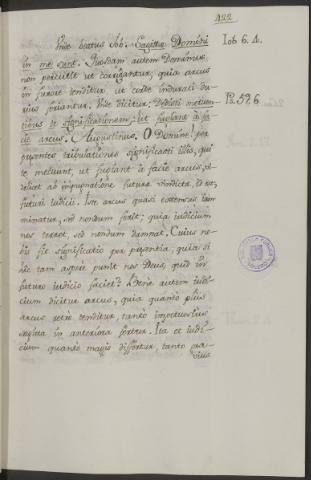 422
Unde beatus Job. Sagittæ Domini
in me sunt. Quosdam autem Dominus
non percutit ut corrigantur, quia arcus
in funale tenditur ut corde indurati du-
rius feriantur. Unde dicitur; Dedisti metuen-
tibus te significationem, ut fugiant à fa-
cie arcus. Augustinus. O Domine! per
præsentes tribulationes significasti illis, qui
te metuunt, ut fugiant à facie arcus, vi-
delicet ab impugnatione futuræ vindictæ, id est,
futuri iudicii. Iste arcus quasi extensus com-
minatur, sed nondum ferit; quia iudicium
nos terret, sed nondum damnat. Cuius no-
bis fit significatio per præsentia, quia si
hic tam aspere punit nos Deus, quid in
futuro iudicio faciet? Bene autem iudi-
cium dicitur arcus, quia quanto plus
arcus retro tenditur, tantò impetuosius
sagitta in anteriora fertur. Ita et iudi-
cium quantò magis differtur, tanto gra-
vius
Iob 6. 4.
Ps. 59. 6.